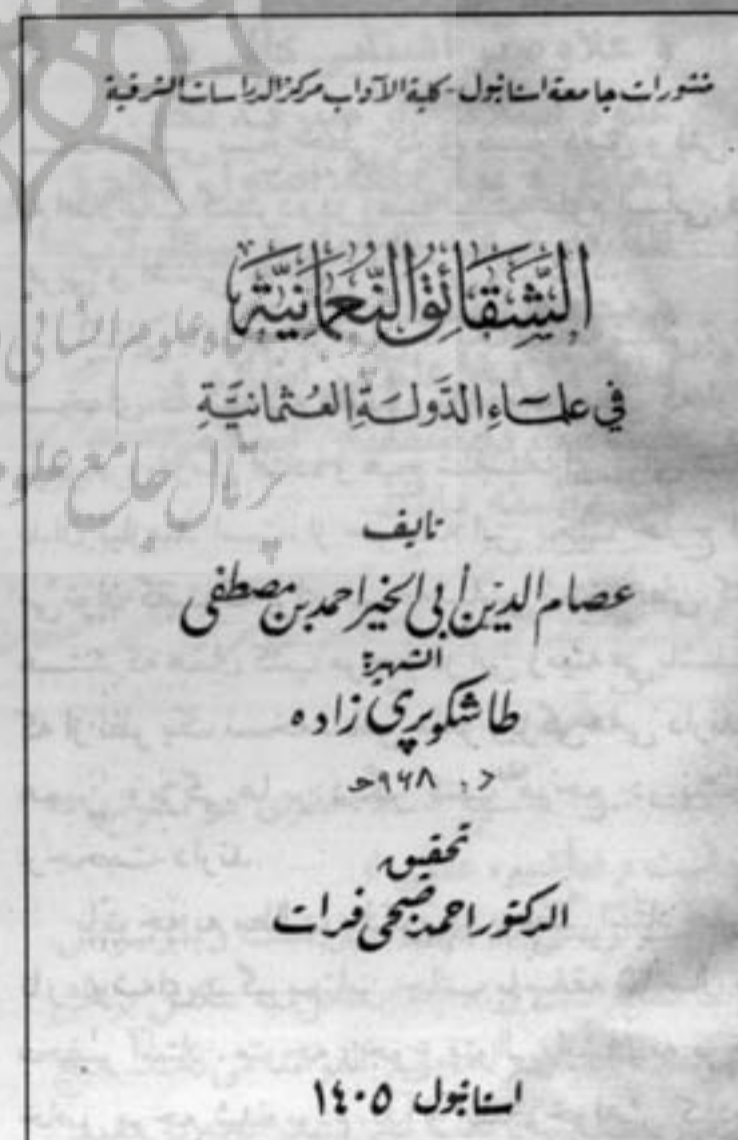 منشورات جامعة استانبول - كلية الآداب مركز الدراسات الشرقية
الشَّقَائِقُ النُّعْمَانِيَّة
في علماءِ الدَّولَةِ العُثمَانيَّةِ
تاليف
عصام الدين أبي الخير احمد بن مصطفى
الشهير بـ
طاشكوپري زاده
د. ٩٦٨هـ
تحقيق
الدكتور احمد صبحي فرات
استانبول ١٤٠٥
پرتال جامع علوم